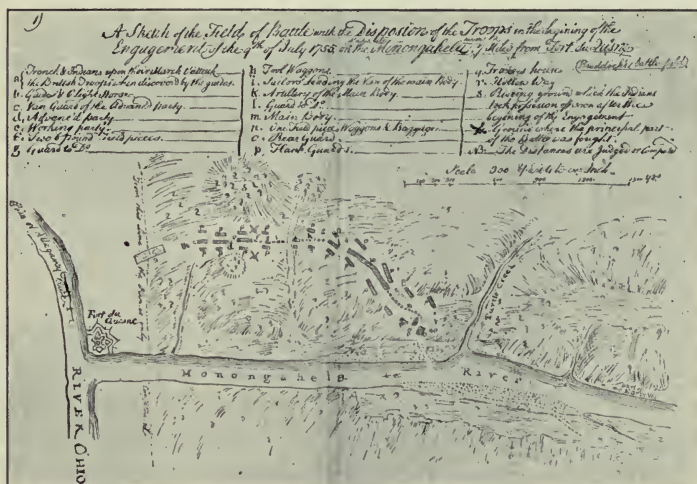 1)
A Sketch of the Field of Battle with the Disposition of the Troops in the begining of the
Engagement of the 9th of July 1755 on the Monongahela 7 Miles from Fort du Quisne
Braddock's Battle field
a, French & Indians upon their March to Attack
the British Troops when discovered by the guides.
b, Guides & 6 light Horse.
c, Van Guard of the Advanced party.
d, Advanc'd party
e, Working party
f, Two 6 Pound Field pieces.
g, Guard to Do
h, Tool Waggons
i, Sailors & leading the Van of the main Body.
k, Artillery of the Main Body.
l, Guard to Do
m, Main Body.
n, Field piece, Waggons & Baggage.
o, Rear Guard
p, Flank Guards.
q, house
r, Hollow Way
s, Riseing ground which the Indians
took possession of soon after the
beginning of the Engagement
x, Ground where the principal part
of the Battle was fought
NB. The Distances are Judged
Scale 300 Yards to an Inch
Fort du
Quisne
Turtle Creek
Monongahela River
RIVER OHIO